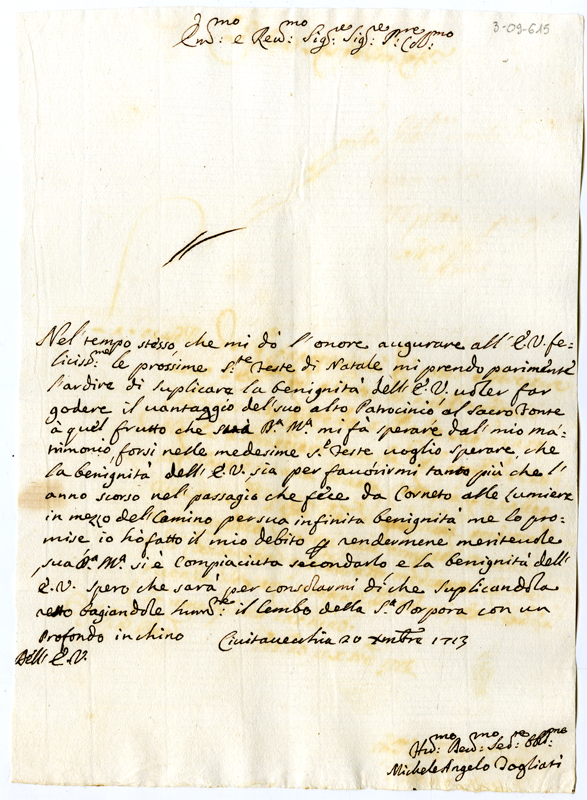 3-09-615
E.mo: e Reu.mo: Sig.re Sig.re P.re Col.mo:
Nel' tempo stesso, che mi dò l'onore augurare all' E.V. fe-
liciss.me: le prossime S.te Feste di Natale mi prendo parimente
l'ardire di suplicare la benignità dell' E.V. uoler far
godere il uantaggio del suo alto Patrocinio al Sacro Fonte
à quel frutto che S.a D.a M.a mi fà sperare dal' mio ma-
trimonio, forsi nelle medesime S.e Feste uoglio sperare, che
la benignità dell' E.V. sia per fauorirmi tanto più che l'
anno scorso nel' passagio che fece da Corneto alle Lumiere
in mezo del' Camino per sua infinita benignità me lo pro-
mise io hò fatto il mio debito p rendermene meriteuole
sua D.a M.a si è compiaciuta secondarlo e la benignità dell'
E.V. spero che sarà per consolarmi di che suplicandola
resto bagiandole hum.te: il Lembo della S.a Porpora con un
Profondo inchino Ciuitauecchia 20 Xmbre 1713
Dell' E.V.
Hu.mo: Deu.mo: Ser.re: Obl.mo:
Michele Angelo